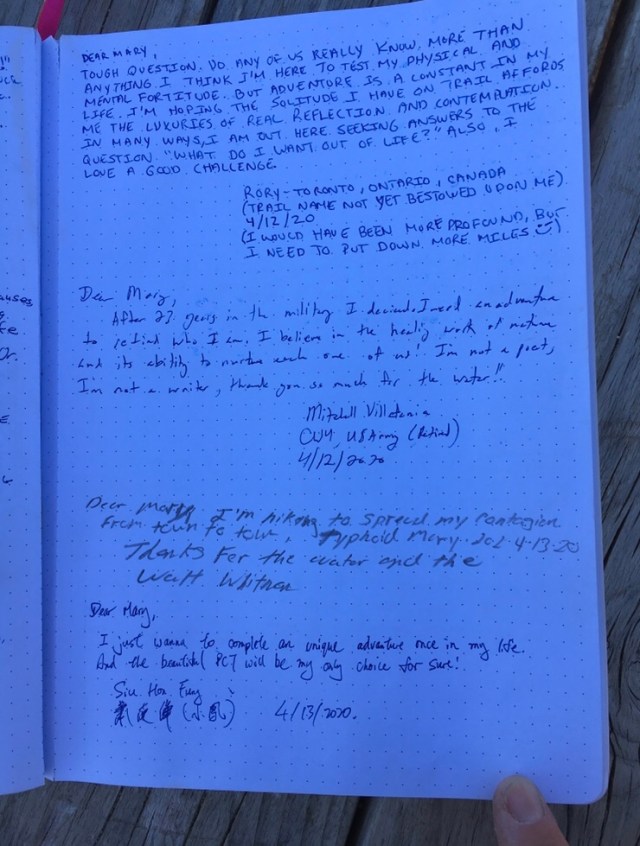 DEAR MARY,
TOUGH QUESTION. DO ANY OF US REALLY KNOW. MORE THAN
ANYTHING I THINK I'M HERE TO TEST MY PHYSICAL AND
MENTAL FORTITUDE. BUT ADVENTURE IS A CONSTANT IN MY
LIFE. I'M HOPING THE SOLITUDE I HAVE ON TRAIL AFFORDS
ME THE LUXURIES OF REAL REFLECTION AND CONTEMPLATION.
IN MANY WAYS, I AM OUT HERE SEEKING ANSWERS TO THE
QUESTION. "WHAT DO I WANT OUT OF LIFE?" ALSO, I
LOVE A GOOD CHALLENGE
RORY - TORONTO, ONTARIO, CANADA
(TRAIL NAME NOT YET BESTOWED UPON ME)
4/12/20
(I WOULD HAVE BEEN MORE PROFOUND, BUT
I NEED TO PUT DOWN MORE MILES)
Dear Mary,
After 27 years in the military I decided I need an adventure
to refind who I am. I believe in the healing work of nature
and its ability to nurture each one of us! I'm not a poet,
I'm not a writer, thank you so much for the water!!
Mitchell
CW4 US Army (Retired)
4/12/2020
Dear Mary I'm hiking to spread my contagion
from town to town, Typhoid Mary. 4-13-20
Thanks For the water and the
Walt Whitman
Dear Mary,
I just wanna to complete an unique adventure once in my life.
And the beautiful PCT will be my only choice for sure!
Siu Hon Fung
4/13/2020.